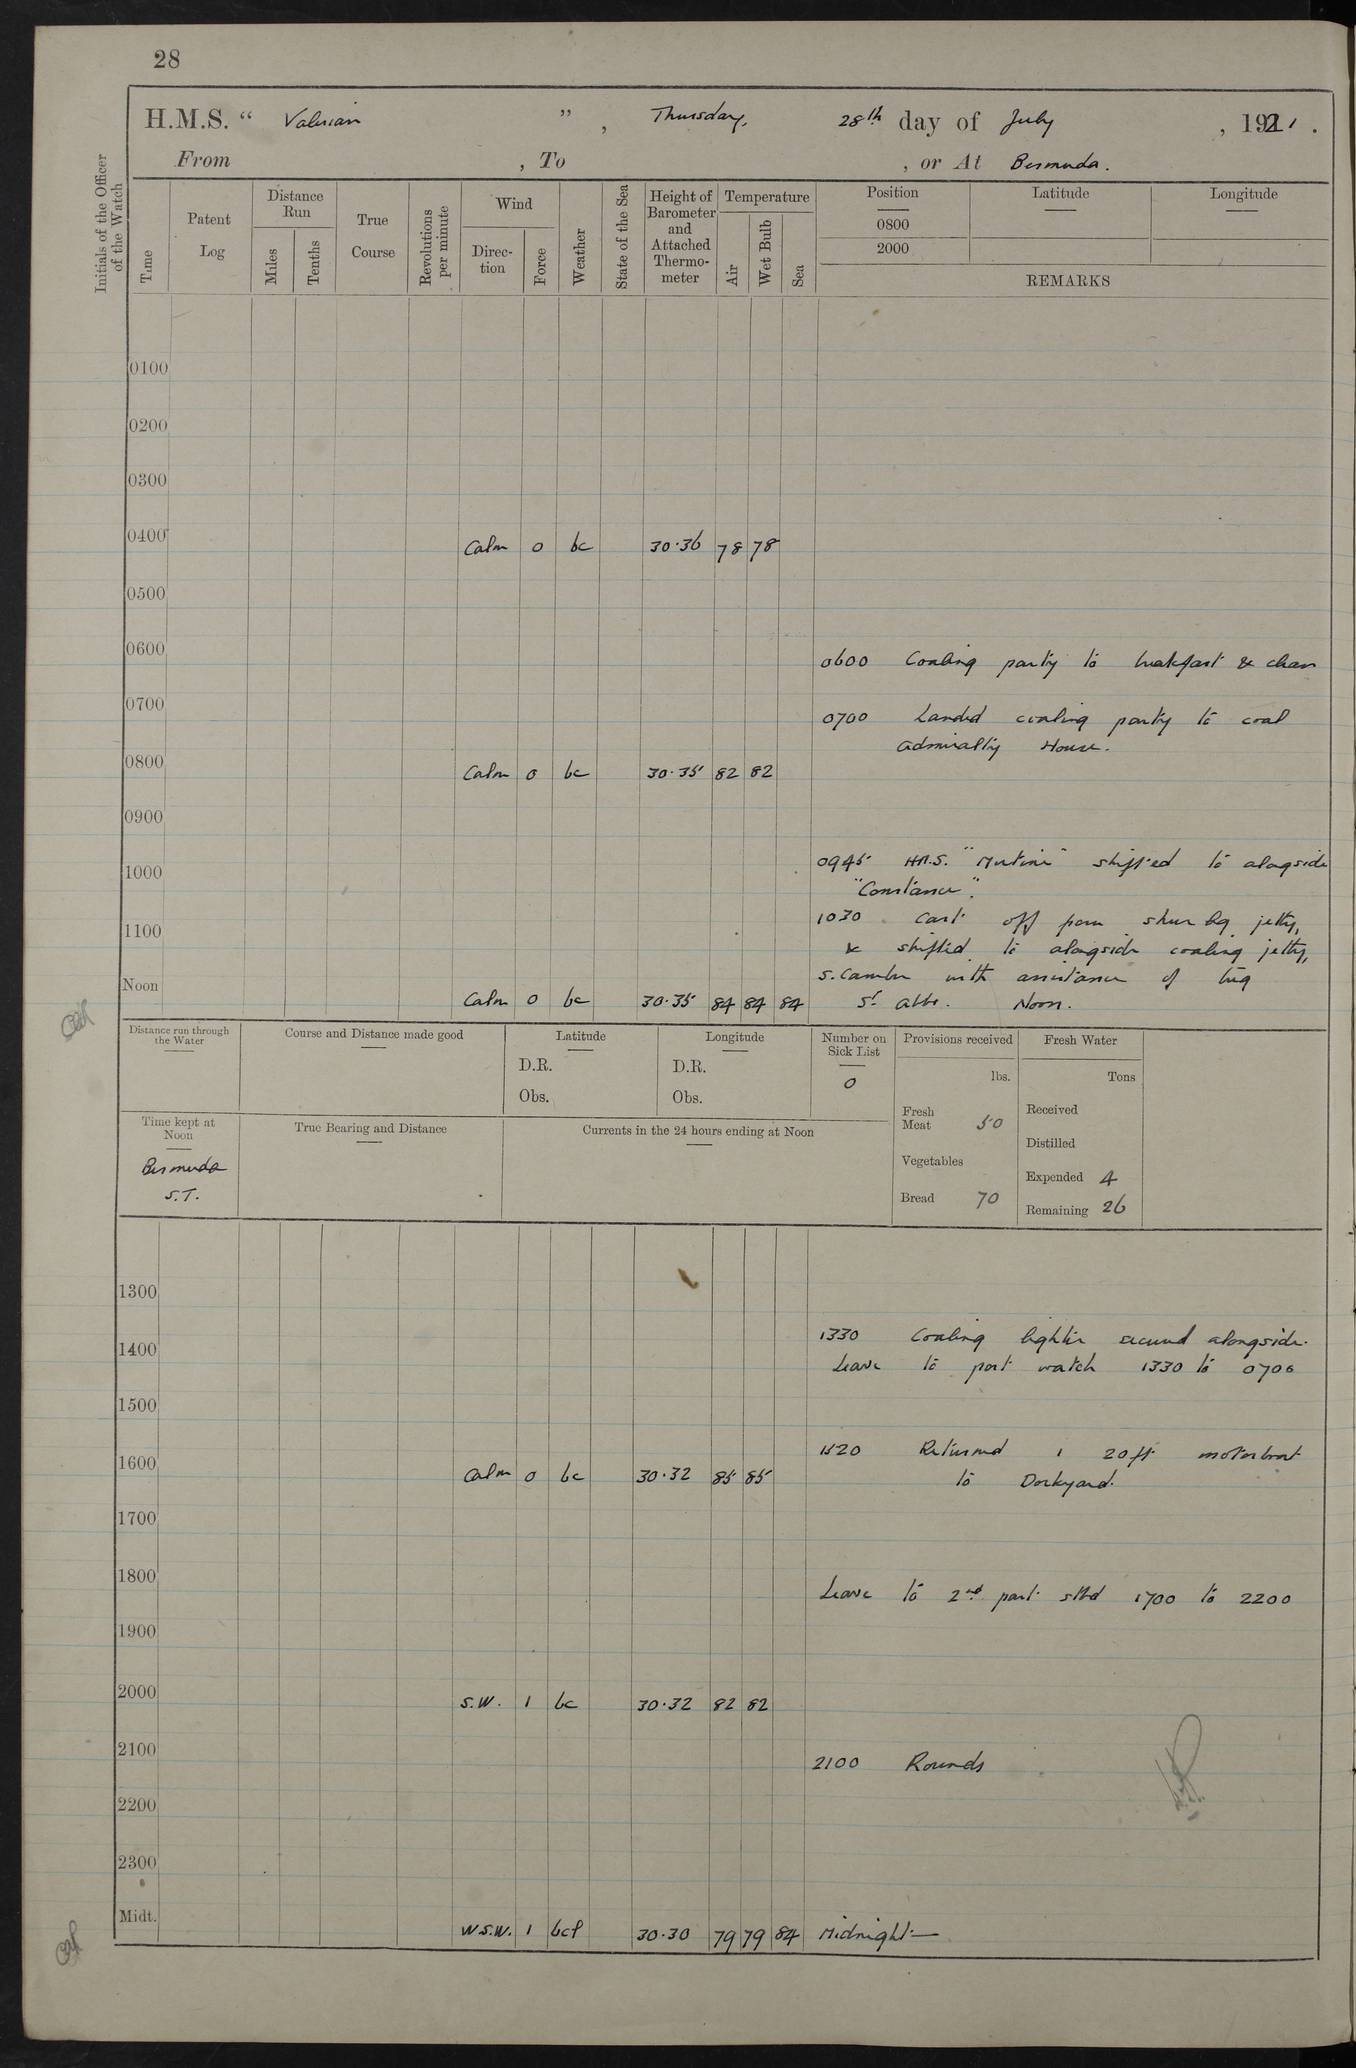 28
H.M.S. “ Valerian ” , Thursday, 28th day of July , 1921 .
From , To , or At Bermuda.
Initials of the Officer of the Watch
Time
Patent Log
Distance Run
Miles
Tenths
True Course
Revolutions per minute
Wind
Direc-tion
Force
Weather
State of the Sea
Height of Barometer and Attached Thermo-meter
Temperature
Air
Wet Bulb
Sea
Position
0800
2000
Latitude
Longitude
REMARKS
0100
0200
0300
0400 Calm 0 bc 30.36 78 78
0500
0600
0600 Coaling party to breakfast & clean
0700
0700 Landed coaling party to coal
Admiralty House.
0800 Calm 0 bc 30.35 82 82
0900
0945 H.M.S. "Mutine" shifted to alongside
1000
"Constance".
1030 Cast off from shear leg jetty,
1100
& shifted to alongside coaling jetty,
S. Camber with assistance of tug
Noon Calm 0 bc 30.35 84 84 84 St Abbs. Noon.
Distance run through the Water
Course and Distance made good
Latitude
D.R.
Obs.
Longitude
D.R.
Obs.
Number on Sick List
0
Provisions received
lbs.
Fresh Meat 50
Vegetables
Bread 70
Fresh Water
Tons
Received
Distilled
Expended 4
Remaining 26
Time kept at Noon
Bermuda
S.T.
True Bearing and Distance
Currents in the 24 hours ending at Noon
1300
1330 Coaling lighter secured alongside.
1400
Leave to port watch 1330 to 0700
1500
1520 Returned 1 20ft motorboat
1600 Calm 0 bc 30.32 85 85 to Dockyard.
1700
1800
Leave to 2nd part stbd 1700 to 2200
1900
2000 S.W. 1 bc 30.32 82 82
2100
2100 Rounds
2200
2300
Midt. W.S.W. 1 bcl 30.30 79 79 84 Midnight